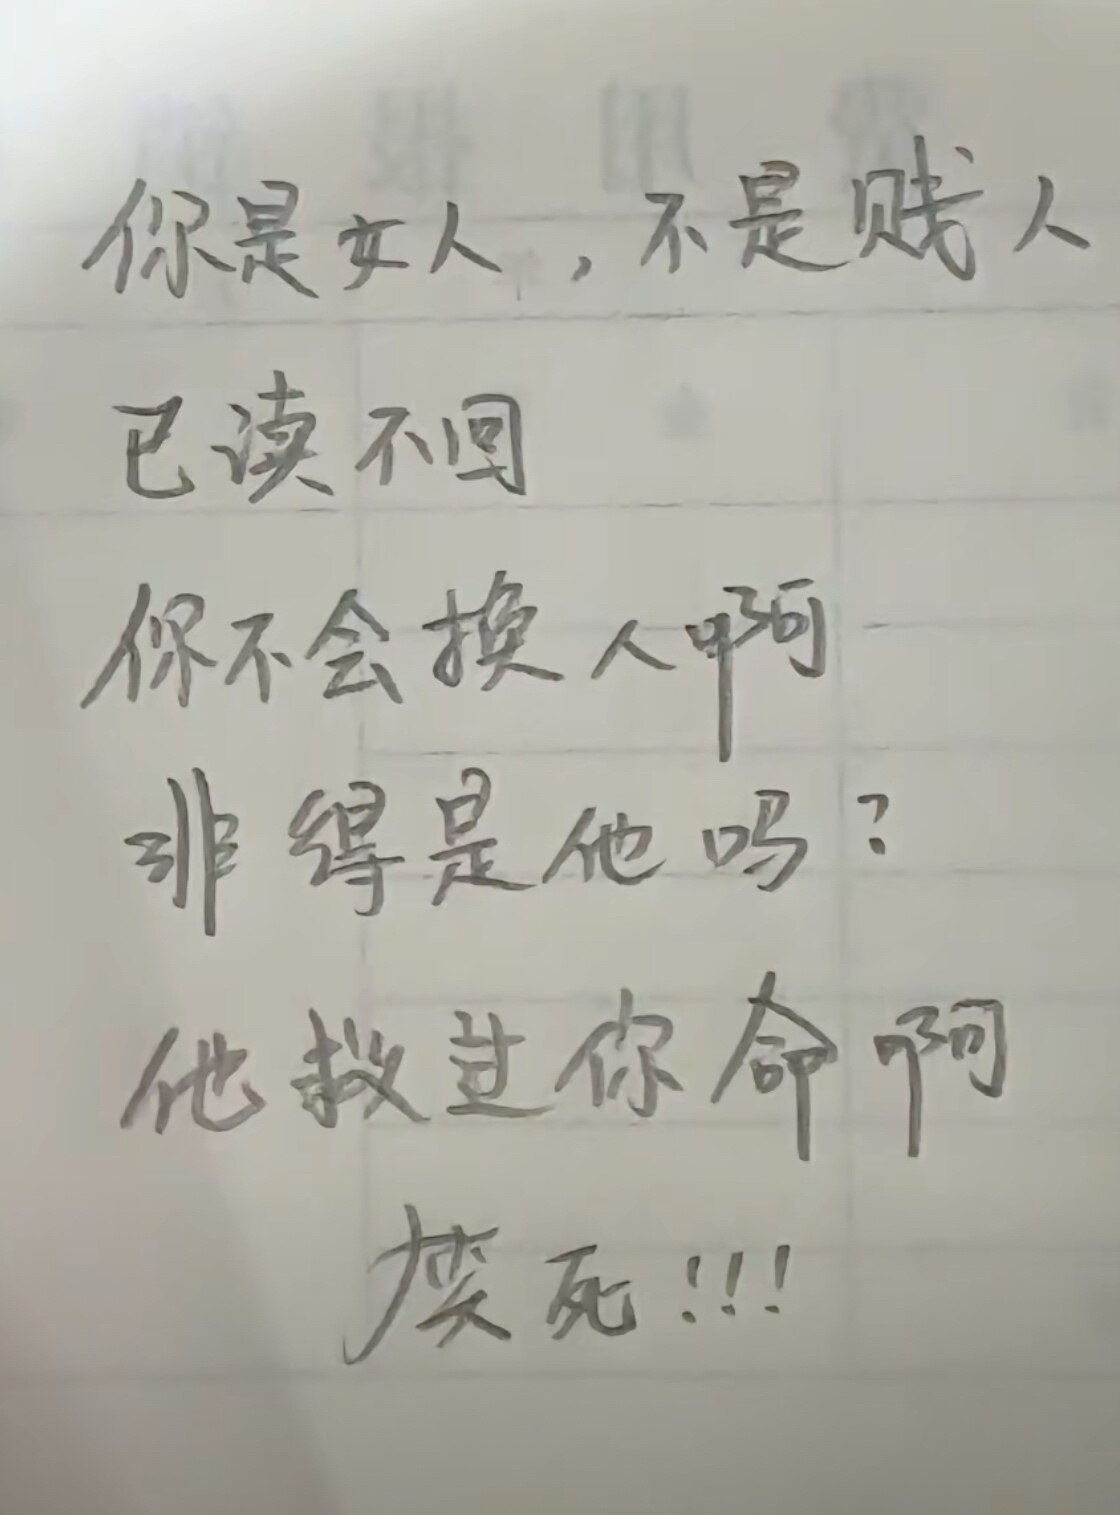 你是女人，不是贱人
已读不回
你不会换人啊
非得是他吗？
他救过你命啊
死!!!